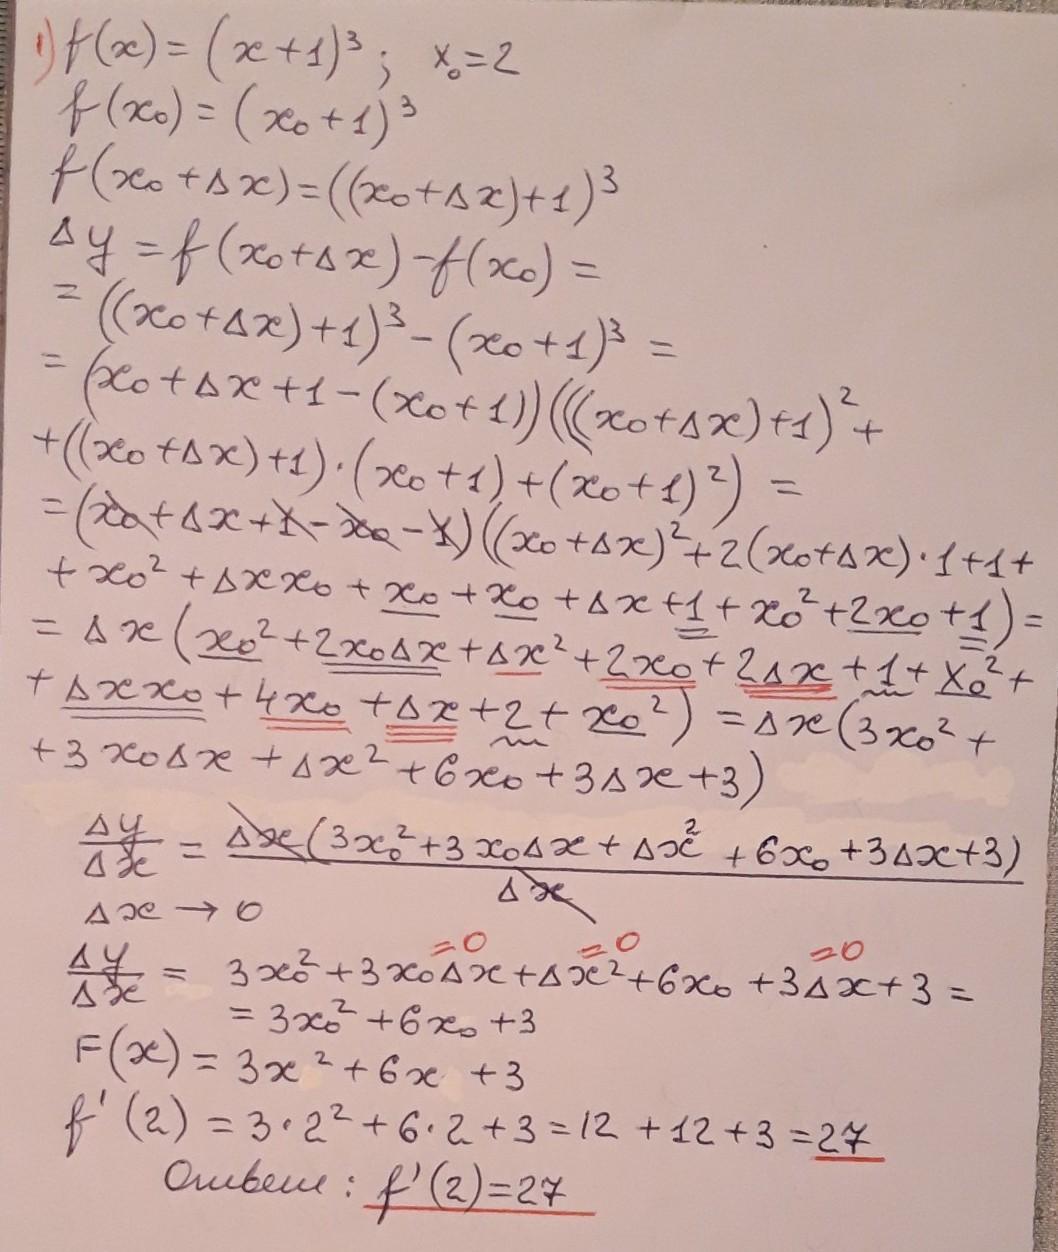 1) f(x) = (x+1)³; x₀=2
f(x₀) = (x₀+1)³
f(x₀+Δx)=((x₀+Δx)+1)³
Δy = f(x₀+Δx)-f(x₀) =
= ((x₀+Δx)+1)³-(x₀+1)³ =
= (x₀+Δx+1-(x₀+1))(((x₀+Δx)+1)²+
+((x₀+Δx)+1)·(x₀+1)+(x₀+1)²) =
=(x₀+Δx+1-x₀-1)((x₀+Δx)²+2(x₀+Δx)·1+1+
+x₀²+Δxx₀+x₀+x₀+Δx+1+x₀²+2x₀+1)=
= Δx(x₀²+2x₀Δx+Δx²+2x₀+2Δx+1+x₀²+
+Δxx₀+4x₀+Δx+2+x₀²) = Δx(3x₀²+
+3x₀Δx+Δx²+6x₀+3Δx+3)
Δy/Δx = Δx(3x₀²+3x₀Δx+Δx²+6x₀+3Δx+3)/Δx
Δx → 0
=0 =0 =0
Δy/Δx = 3x₀²+3x₀Δx+Δx²+6x₀+3Δx+3 =
= 3x₀²+6x₀+3
F(x) = 3x²+6x+3
f'(2) = 3·2²+6·2+3=12+12+3=27
Ответ: f'(2)=27